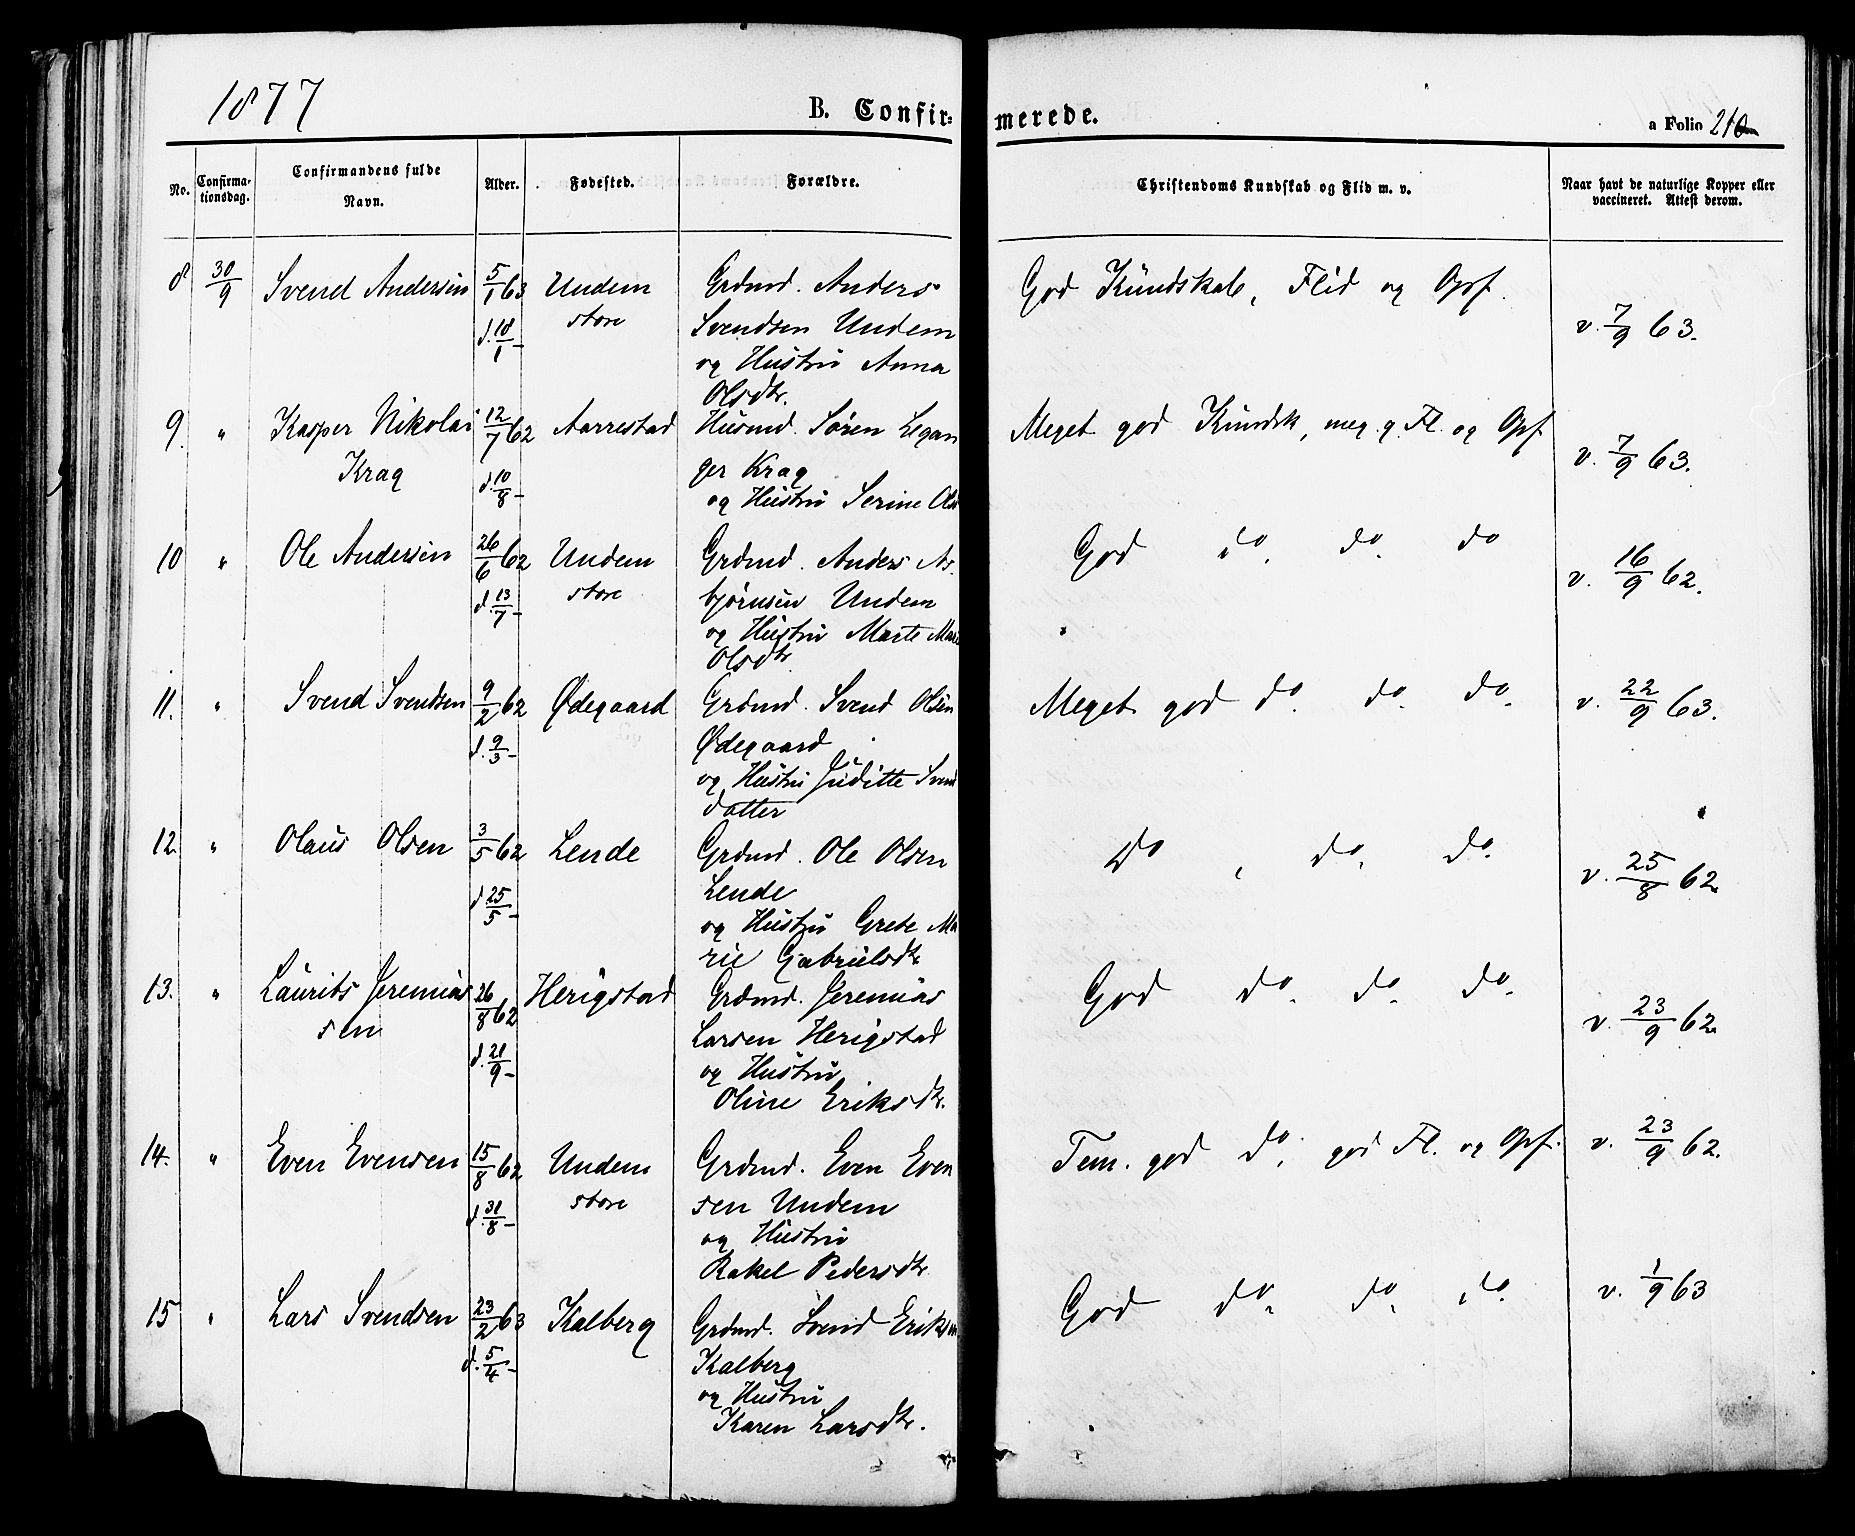 1877
B. Confir=
merede.
a Folio 210
No.
Confirma-
tionsdag.
Confirmandens fulde
Navn.
Alder.
Fødested.
Forældre.
Christendoms Kundskab og Flid m. v.
Naar havt de naturlige Kopper eller
vaccineret. Attest derom.
8 30/9 Svend Andersen 5/1 63 Undem Grdmd. Anders God Kundskab, Flid og Opf.
d. 18/1 - store Svendsen Undem v. 7/9 63.
og Hustru Anna
Olsdtr.
9. " Kasper Nikolai 12/7 62 Aarrestad Husmd. Søren Legan Meget god Kundsk, meg. g. Fl. og Opf
Krag d. 10/8 - ger Krag v. 7/9 63.
og Hustru Serine Ols
10 " Ole Andersen 26/6 62 Undem Grdmd. Anders As- God do. do. do
d. 13/7 - store bjørnsen Undem v. 16/9 62.
og Hustru Marte Mari
Olsdtr
11. " Svend Svendsen 9/2 62 Ødegaard Grdmd. Svend Olsen Meget god do. do. do. v. 22/9 63.
d. 9/3 - Ødegaard
og Hustru Juditte Svend
datter
12. " Olaus Olsen 3/5 62 Lende Grdmd. Ole Olsen do, do. do.
d. 25/5 - Lende v. 25/8 62.
og Hustru Grete Ma
rie Gabrielsdtr
13. " Laurits Jeremias 26/8 62 Herigstad Grdmd. Jeremias God do. do. do.
sen d. 21/9 - Larsen Herigstad v. 23/9 62.
og Hustru
Oline Eriksdtr.
14. " Even Evensen 15/8 62 Undem Grdmd. Even Even Tem. god do, god Fl. og Opf. v. 23/9 62.
d. 31/8 - store sen Undem
og Hustru
Rakel Pedersdtr
15 " Lars Svendsen 23/2 63 Kalberg Grdmd. Svend Eriksen God do. do. do. v. 1/9 63
d. 5/4 - Kalberg
og Hustru
Karen Larsdtr.